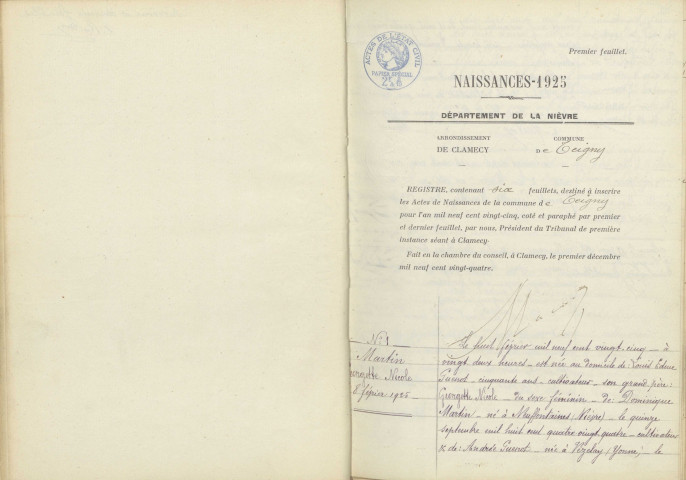 Premier feuillet.
ACTES DE L'ÉTAT CIVIL
PAPIER SPÉCIAL
NAISSANCES-1925
DÉPARTEMENT DE LA NIÈVRE
ARRONDISSEMENT
DE CLAMECY
COMMUNE
De Teigny
REGISTRE, contenant six feuillets, destiné à inscrire
les Actes de Naissances de la commune de Teigny
pour l'an mil neuf cent vingt-cinq, coté et paraphé par premier
et dernier feuillet, par nous, Président du Tribunal de première
instance séant à Clamecy.
Fait en la chambre du conseil, à Clamecy, le premier décembre
mil neuf cent vingt-quatre.
N° 1
Martin
Georgette Nicole
8 février 1925
Le huit février mil neuf cent vingt cinq – à
vingt deux heures – est née au domicile de Louis Edme
cinquante ans – cultivateur – son grand père :
Georgette Nicole – du sexe féminin – de Dominique
Martin – né à Neuffontaines (Nièvre) – le quinze
septembre mil huit cent quatre vingt quatre – cultivateur
& de : Andrée – née à Vézelay (Yonne) – le